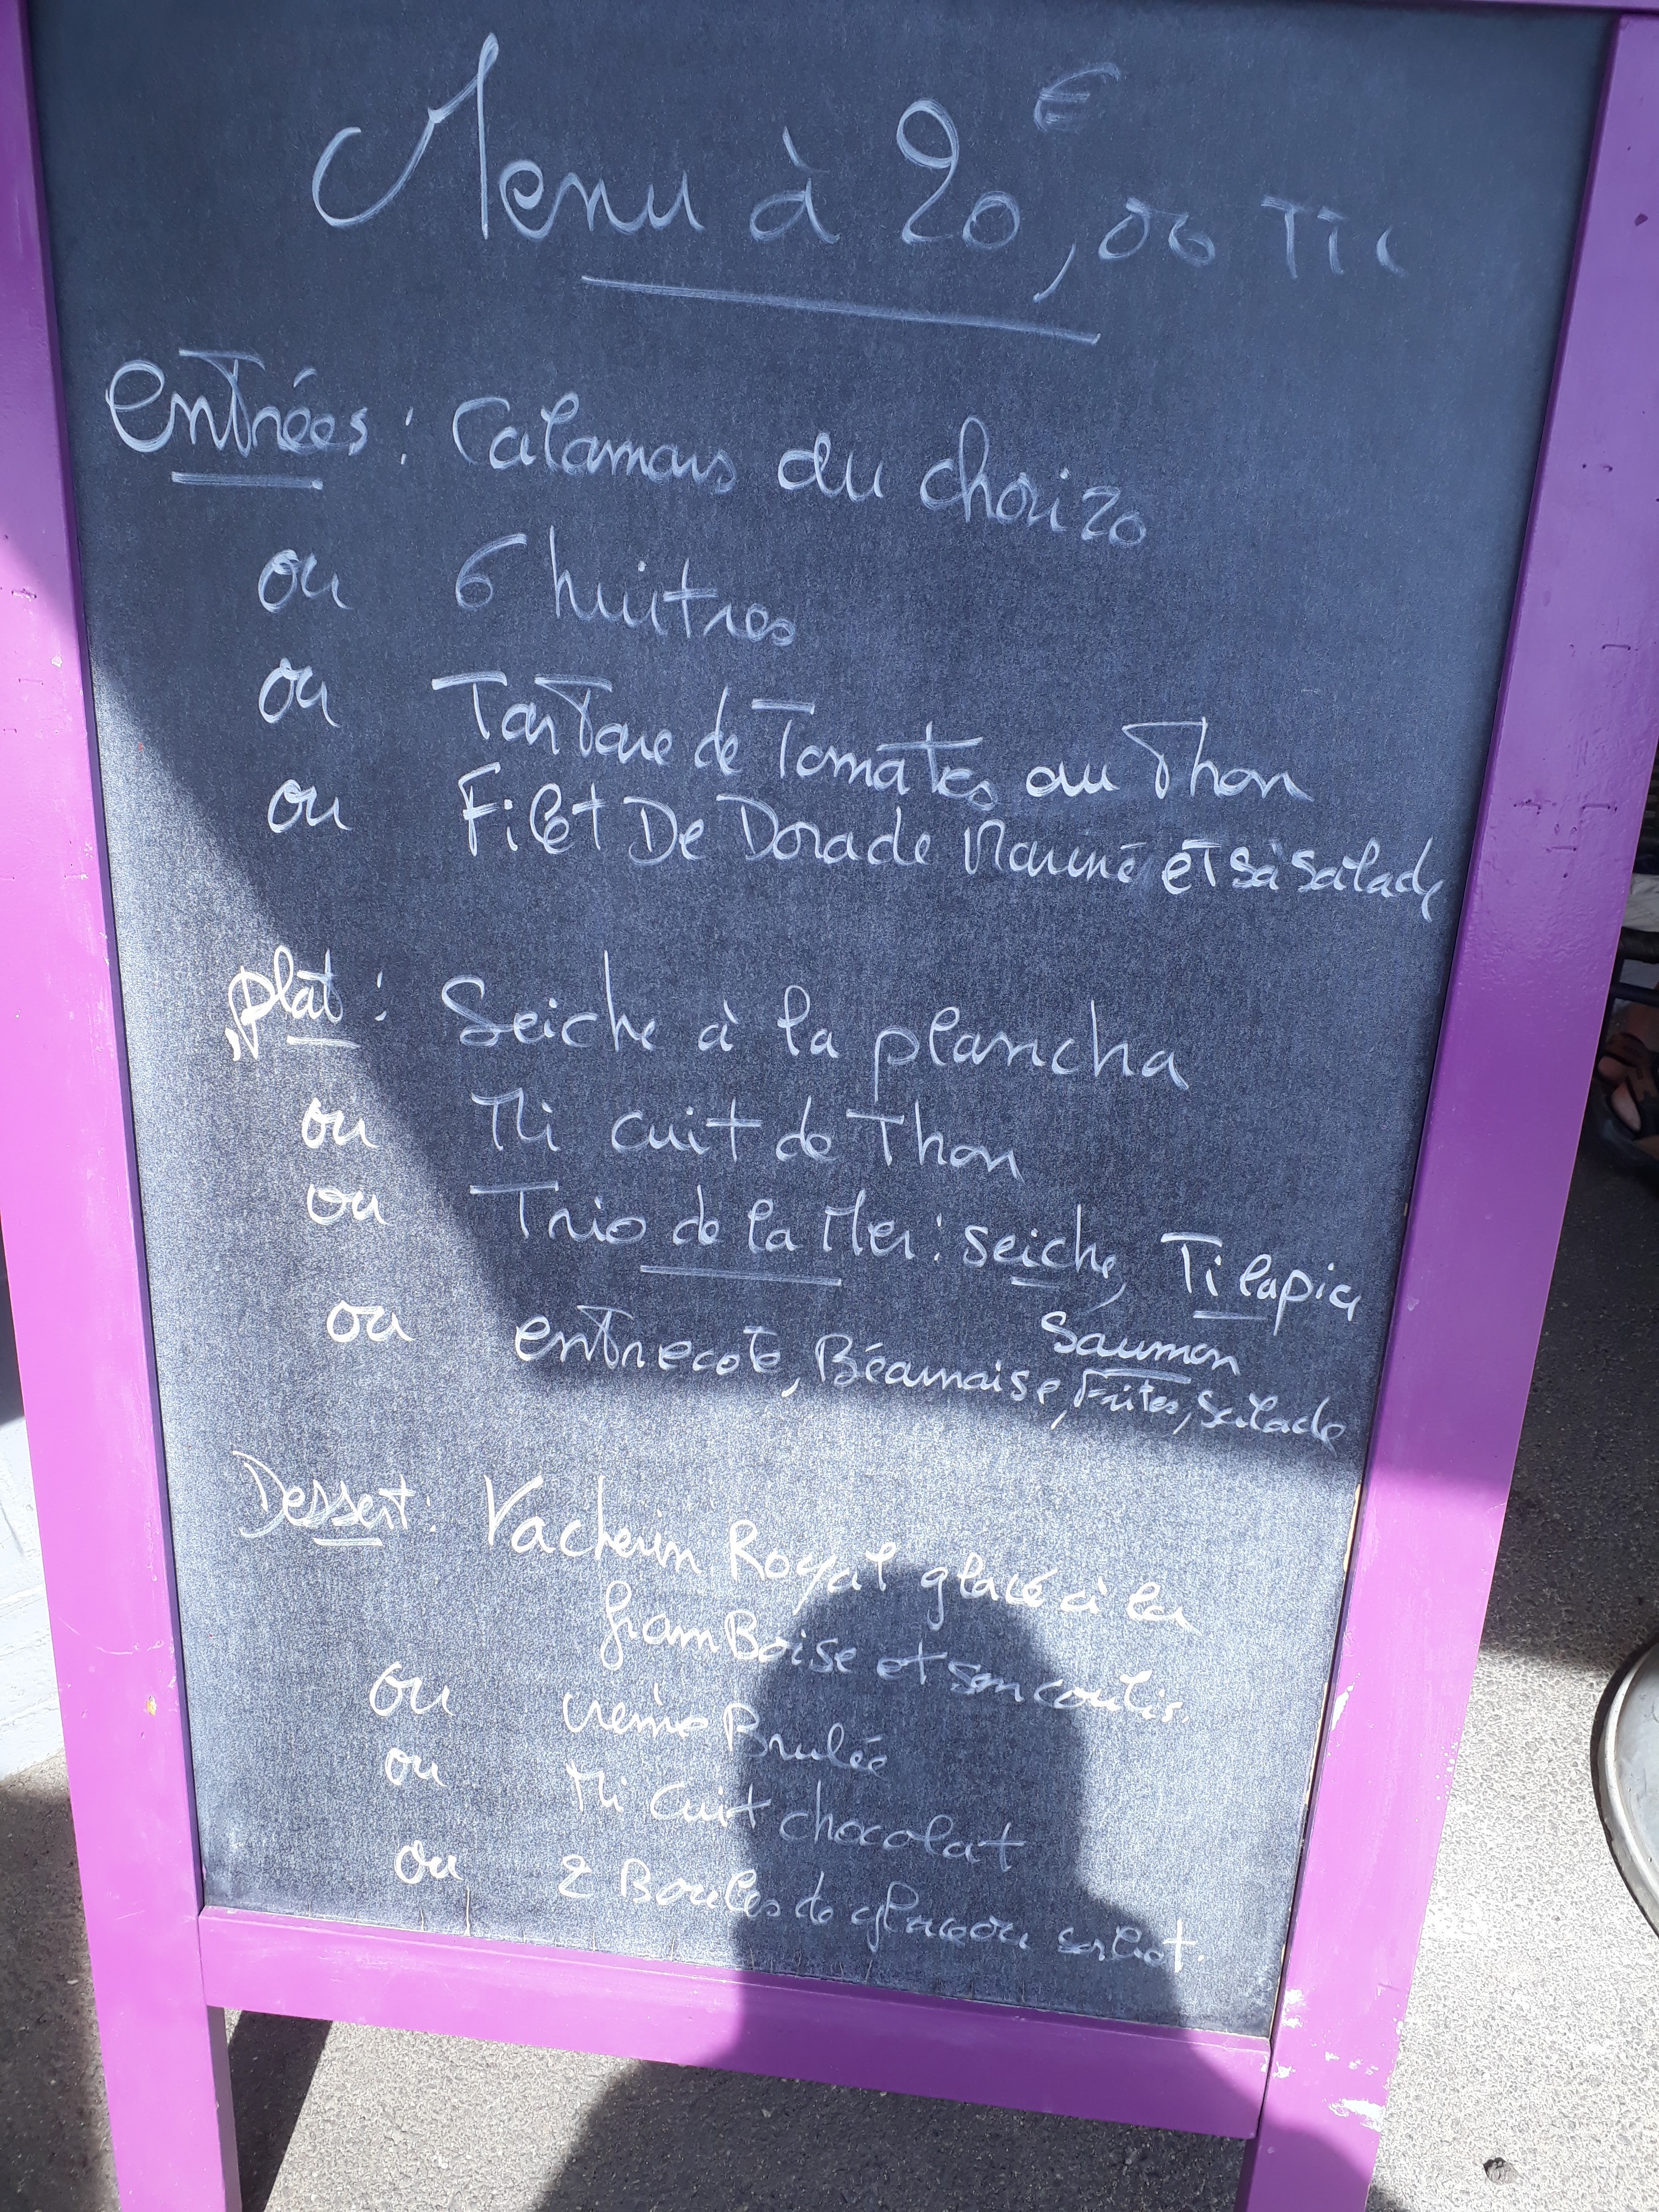 Menu à 20,00 € TTC
entrées : Calamars au chorizo
ou 6 huitres
ou Tartare de Tomates au Thon
ou Filet De Dorade Mariné et sà salade
plat : Seiche à la plancha
ou Mi cuit de Thon
ou Trio de la Mer : seiche, Tilapia
Saumon
ou entrecote, Béarnaise, Frites, Salade
Dessert : Vacherin Royal glacé à la
framBoise et son coulis.
ou crème Brulée
ou Mi Cuit chocolat
ou 2 Boules de glace ou sorbet.